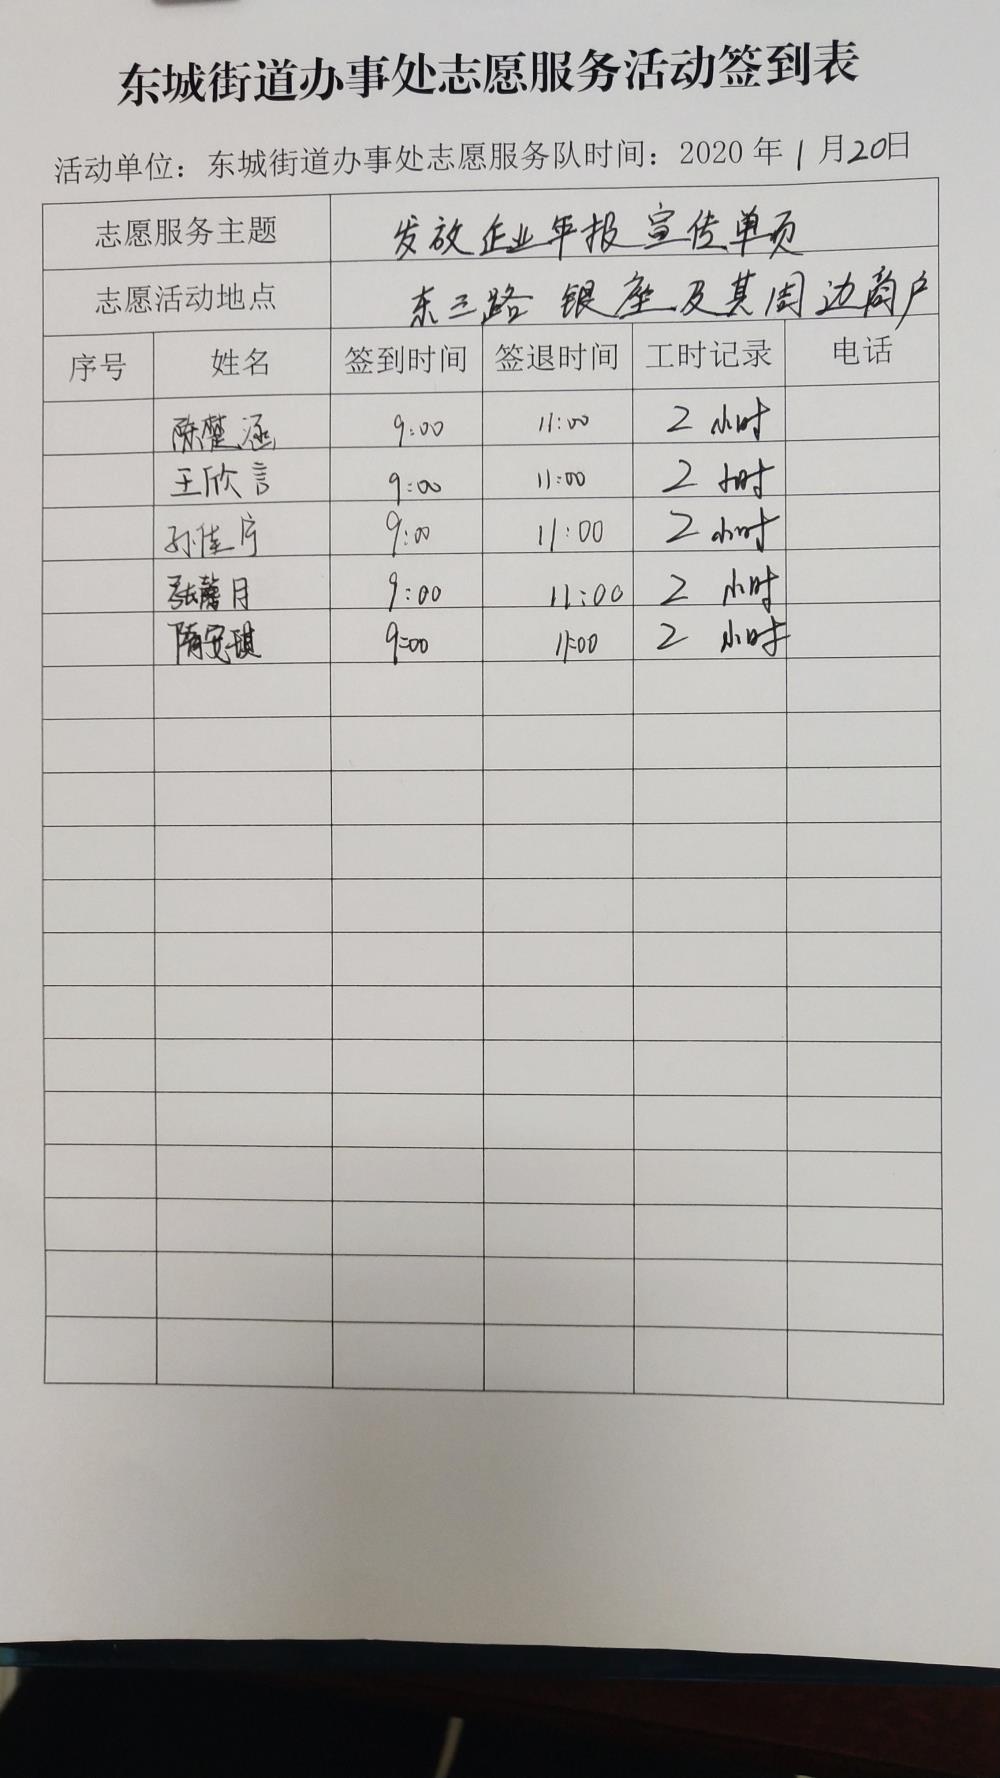 东城街道办事处志愿服务活动签到表
活动单位：东城街道办事处志愿服务队时间：2020 年 1 月 20日
志愿服务主题 发放企业年报宣传单页
志愿活动地点 东三路 银座及其周边商户
序号 姓名 签到时间 签退时间 工时记录 电话
陈楚涵 9:00 11:00 2 小时
王欣言 9:00 11:00 2 小时
孙佳宁 9:00 11:00 2 小时
张馨月 9:00 11:00 2 小时
隋安琪 9:00 11:00 2 小时